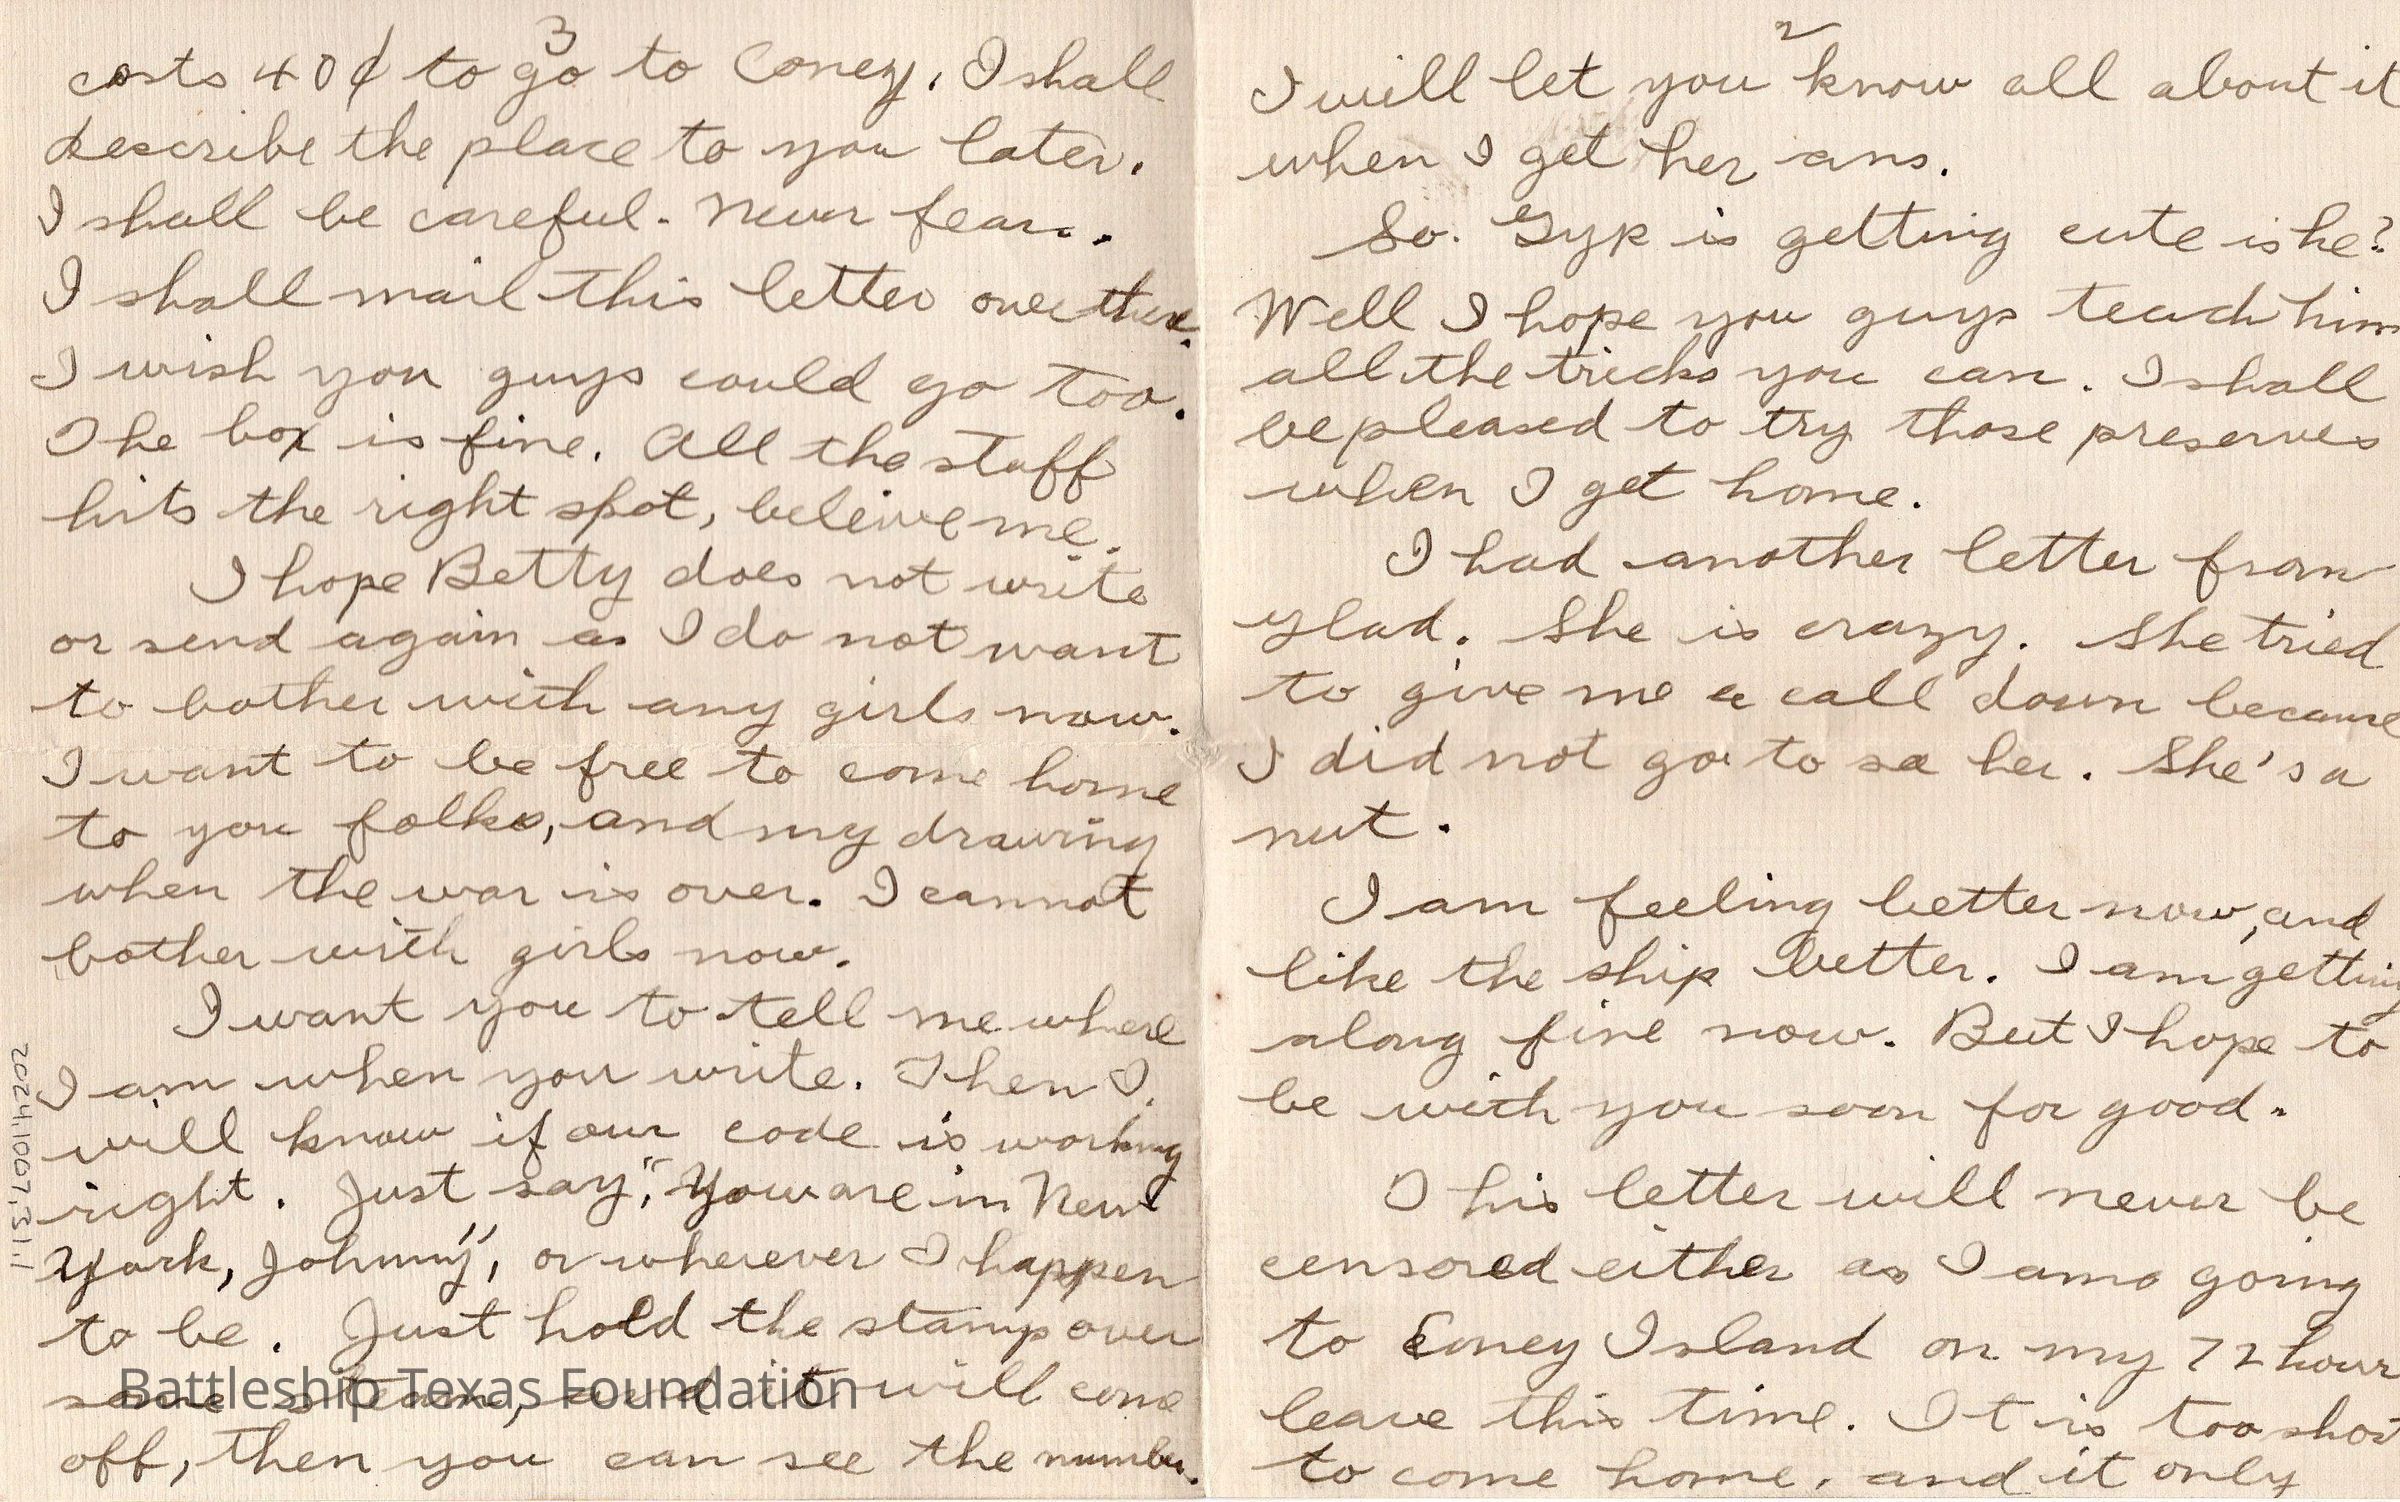 2
I will let you know all about it
when I get her ans.
So. Gyp is getting cute is he?
Well I hope you guys teach him
all the tricks you can. I shall
be pleased to try those preserves
when I get home.
I had another letter from
Glad. She is crazy. She tried
to give me a call down because
I did not go to see her. She's a
nut.
I am feeling better now, and
like the ship better. I am getting
along fine now. But I hope to
be with you soon for good.
This letter will never be
censored either as I am going
to Coney Island on my 72 hour
leave this time. It is too short
to come home, and it only
3
costs 40¢ to go to Coney. I shall
describe the place to you later.
I shall be careful. Never fear.
I shall mail this letter over there.
I wish you guys could go too.
The box is fine. All the stuff
hits the right spot, beleive me.
I hope Betty does not write
or send again as I do not want
to bother with any girls now.
I want to be free to come home
to you folks, and my drawing
when the war is over. I cannot
bother with girls now.
I want you to tell me where
I am when you write. Then I
will know if our code is working
right. Just say, "You are in New
York, Johnny", or wherever I happen
to be. Just hold the stamp over
some steam, and it will come
off, then you can see the number.
2024.1007.31.1
Battleship Texas Foundation